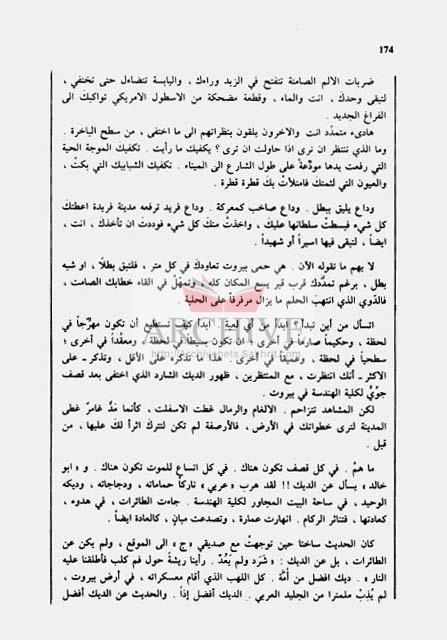 174
ضربات الالم الصامتة تتفتح في الزبد وراءك ، واليابسة تتضاءل حتى تختفي ،
لتبقى وحدك ، انت والماء ، وقطعة مضحكة من الاسطول الامريكي تواكبك الى
الفراغ الجديد .
هادىء متمدّد انت والاخرون يلقون بنظراتهم الى ما اختفى ، من سطح الباخرة .
وما الذي ننتظر ان نرى اذا حاولت ان نرى ؟ يكفيك ما رأيت . تكفيك الموجة الحية
التي رفعت يدها مودّعة على طول الشارع الى الميناء . تكفيك الشبابيك التي بكت ،
والعيون التي لثمتك فامتلأت بك قطرة قطرة .
وداع يليق ببطل . وداع صاخب كمعركة . وداع فريد ترفعه مدينة فريدة اعطتك
كل شيء فبسطت سلطانها عليك ، واخذت منك كل شيء فوددت ان تأخذك ، انت ،
ايضاً ، لتبقى فيها اسيراً أو شهيداً .
لا يهم ما تقوله الآن . هي حمى بيروت تعاودك في كل متر ، فلتبق بطلًا ، او شبه
بطل ، برغم تمدّدك قرب قبر يسع المكان كله ، وتمهّل في القاء خطابك الصامت ،
فالدّوي الذي انتهب الحلم ما يزال مرفرفاً على الحلبة .
اتسأل من أين تبدأ ؟ ابدأ من أي لعبة . ابدأ كيف تستطيع أن تكون مهرّجاً في
لحظة ، وحكيماً صارماً في أخرى ، ان تكون بسيطاً في لحظة ، ومعقّداً في أخرى ؛
سطحياً في لحظة ، وعميقاً في أخرى . هذا ما تذكره على الأقل ، وتذكر - على
الاكثر - أنك انتظرت ، مع المنتظرين ، ظهور الديك الشارد الذي اختفى بعد قصف
جوّيٍّ لكلية الهندسة في بيروت .
لكن المشاهد تتزاحم . الالغام والرمال غطت الاسفلت ، كأنما مَدٌّ غامرٌ غطى
المدينة لترى خطواتك في الأرض ، فالأرصفة لم تكن لتترك أثراً لك عليها ، من
قبل .
ما همّ . في كل قصف تكون هناك . في كل اتساع للموت تكون هناك . و « ابو
خالد » يسأل عن الديك !! لقد هرب « عربي » تاركاً حماماته ، ودجاجاته ، وديكه
الوحيد ، في ساحة البيت المجاور لكلية الهندسة . جاءت الطائرات ، في هدوء ،
كعادتها ، فتناثر الركام . انهارت عمارة ، وتصدعت مبانٍ ، كالعادة ايضاً .
كان الحديث ساخنا حين توجهتُ مع صديقي « ج » الى الموقع ، ولم يكن عن
الطائرات ، بل عن الديك : « شَرَد ولم يَعُدْ . رأينا ريشةً حول فم كلب فأطلقنا عليه
النار » . ديك افضل من أمَّة . كل اللهب الذي أقام معسكراته ، في أرض بيروت ،
لم يُذِبْ ملمترا من الجليد العربي . الديك أفضل إذاً . والحديث عن الديك أفضل
ARCHIVE